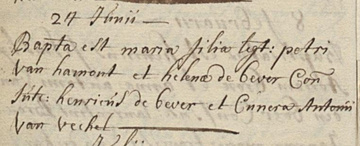 24 Junii
Bapta est maria filia legt: petri
van hamont et helenæ de bever Con
Sute: henricus de bever et Ennera Antonii
van vechel